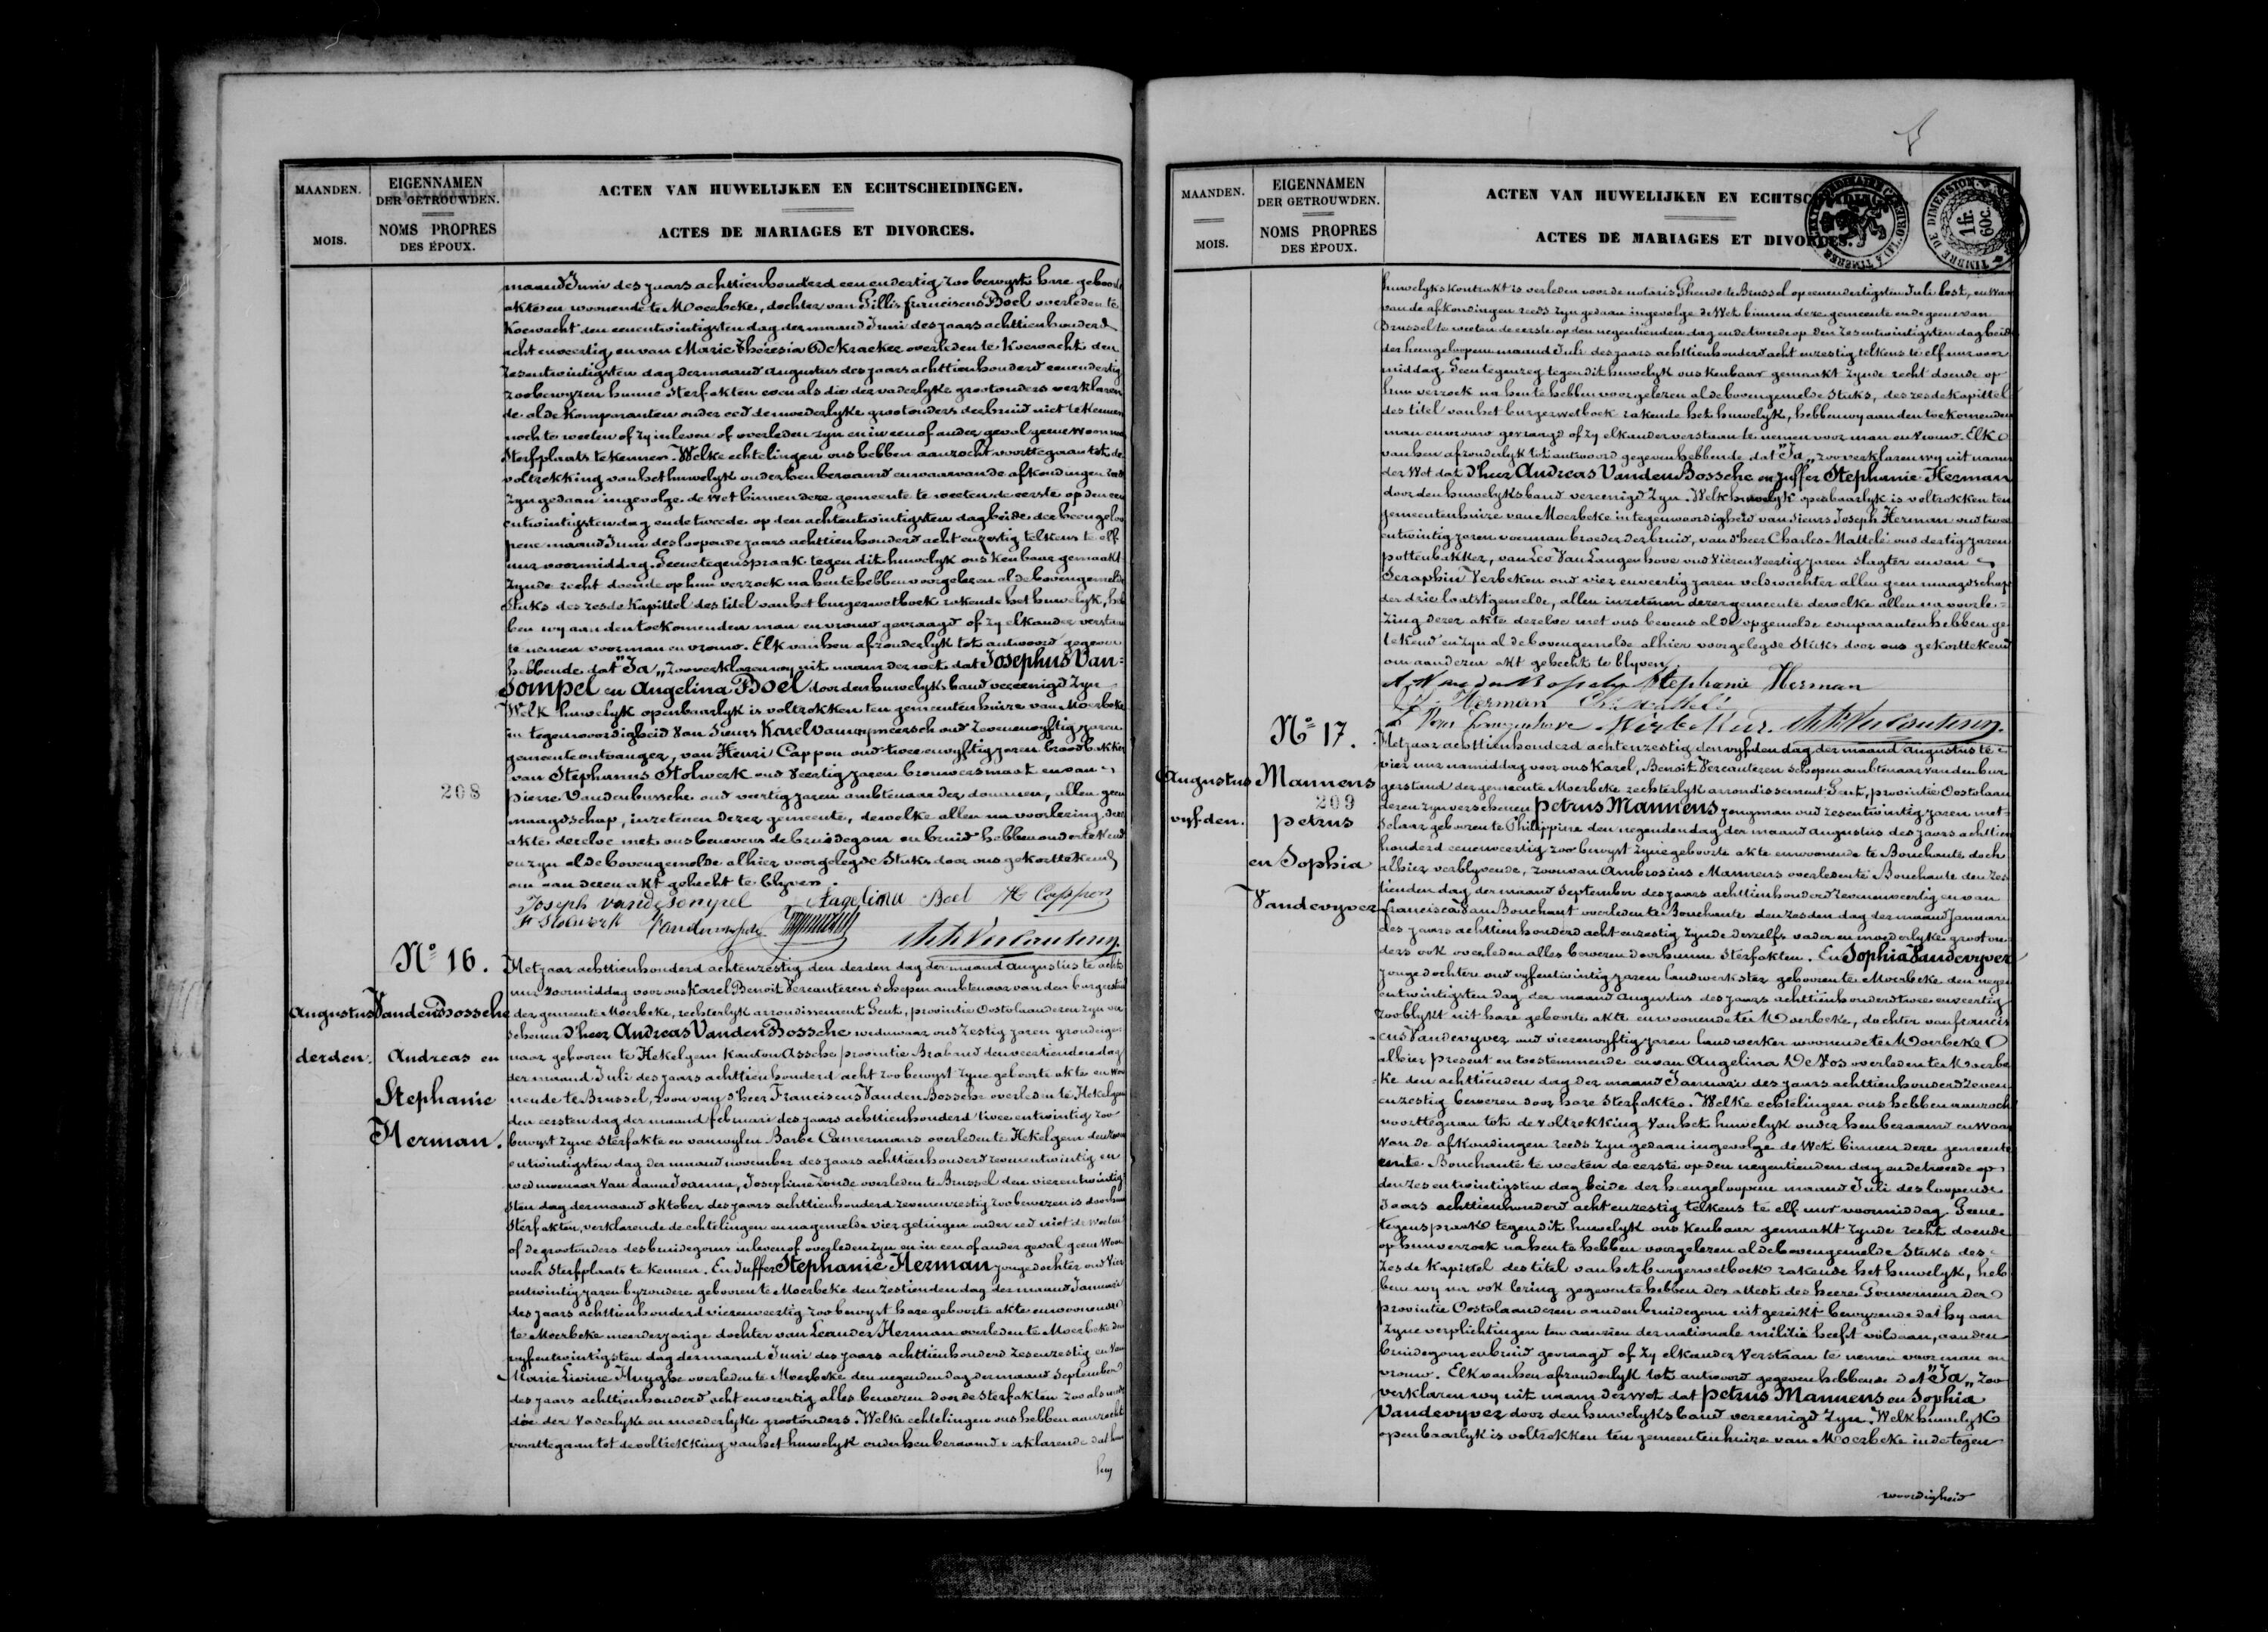 MAANDEN.
MOIS.
EIGENNAMEN
DER GETROUWDEN.
NOMS PROPRES
DES ÉPOUX.
ACTEN VAN HUWELIJKEN EN ECHTSCHEIDINGEN.
ACTES DE MARIAGES ET DIVORCES.
maand Juni des jaars achttienhonderd een en dertig zoo bewyst hare geboorte
akte en woonende te Moerbeke, dochter van Gillis franciscus Boel overleden te
Koewacht den eenentwintigsten dag der maand Juni des jaars achttienhonderd
acht en veertig en van Marie Theresia De Kraeker overleden te Koewacht den
zesentwintigsten dag der maand augustus des jaars achttienhonderd eenendertig
zoo bewyzen hunne Sterfakten even als die der vaderlyke grootouders verklaren
de al de komparanten onder eed de moederlyke grootouders der bruid niet te kennen
noch te weeten of zy in leven of overleden zyn en in een of ander geval geene woon noch
Sterfplaats te kennen. Welke echtelingen ons hebben aanzocht voorttegaan tot de
voltrekking van het huwelyk onder hen beraamd en waarvan de afkondingen reeds
zyn gedaan ingevolge de Wet binnen deze gemeente te weeten de eerste op den een
entwintigsten dag en de tweede op den achtentwintigsten dag beide der heengeloo
pene maand Juni des loopende jaars achttienhonderd acht enzestig telkens te elf
uur voormiddag. Geene tegenspraak tegen dit huwelyk ons kenbaar gemaakt
zynde recht doende op hun verzoek na hen te hebben voorgelezen al de bovengemelde
Stuks des zesde Kapittel des titel van het burgerwetboek rakende het huwelyk, heb
ben wy aan den toekomenden man en vrouw gevraagd of zy elkander verstaan
te nemen voor man en vrouw. Elk van hen afzonderlyk tot antwoord gegeven
hebbende dat "Ja„ zoo verklaren wy uit naam der wet dat Josephus Van=
Sompel en Angelina Boel door den huwelyksband vereenigd zyn
Welk huwelyk openbaarlyk is voltrokken ten gemeentenhuize van Moerbeke
in tegenwoordigheid Van Sieurs Karel Vanwymeersch oud zevenenvyftig jaren
gemeente ontvanger, van Henri Cappon oud twee en vyftig jaren broodbakker
van Stephanus Stolwerk oud veertig jaren brouwersmaat en van
pierre Vandenbussche oud veertig jaren ambtenaar der douanen, allen geen
maagdschap, inzetenen dezer gemeente, dewelke allen na voorlezing dezer
akte dezelve met ons benevens de bruidegom en bruid hebben onderteekend
en zyn al de bovengemelde alhier voorgelegde Stuks door ons gekorttekend
om aan dezen akt gehecht te blyven.
208
Joseph vande Sompel Angelina Boel H Cappon
F Stolwerk
N° 16.
Augustus
derden.
VandenBossche
Andreas en
Stephanie
Herman.
Het jaar achttienhonderd achtenzestig den derden dag der maand augustus te acht
uur voormiddag voor ons Karel Benoit Vercauteren Schepen ambtenaar van den burgerstand
der gemeente Moerbeke, rechterlyk arrondissement Gent, provintie Oostvlaanderen zyn ver
schenen d'heer Andreas VandenBossche weduwaar oud zestig jaren grondeige=
naar geboren te Hekelgem kanton Assche provintie Braband den veertienden dag
der maand Juli des jaars achttienhonderd acht zoo bewyst zyne geboorte akte en woo
nende te Brussel, zoon van d'heer Franciscus VandenBossche overleden te Hekelgem
den eersten dag der maand februari des jaars achttienhonderd twee entwintig zoo
bewyst zyne Sterfakte en van wylen Barbe Camermans overleden te Hekelgem den
entwintigsten dag der maand november des jaars achttienhonderd zevenentwintig en
weduwenaar van dame Joanna, Josephine Zonde overleden te Brussel den vierentwintig
sten dag der maand oktober des jaars achttienhonderd zevenenzestig zoo bewezen is door hunne
Sterfakten, verklarende de echtelingen en nagemelde vier getuigen onder eed niet te weeten
of de grootouders des bruidegoms in leven of overleden zyn en in een of ander geval geene Woon
noch Sterfplaats te kennen. En Juffer Stephanie Herman jongedochter oud Vier
entwintig jaren byzondere geboren te Moerbeke den zestienden dag der maand Januari
des jaars achttienhonderd vierenveertig zoo bewyst hare geboorte akte en woonende
te Moerbeke meerderjarige dochter van Leander Herman overleden te Moerbeke den
vyfentwintigsten dag der maand Juni des jaars achttienhonderd zesenzestig en van
Marie Livine Huyghe overleden te Moerbeke den negenden dag der maand September
des jaars achttienhonderd acht enveertig alles bewezen door de Sterfakten zoo als mede
die der Vaderlyke en moederlyke grootouders. Welke echtelingen ons hebben aanzocht
voorttegaan tot de voltrekking van het huwelyk onder hen beraamd verklarende dat hun
huw
MAANDEN.
MOIS.
EIGENNAMEN
DER GETROUWDEN.
NOMS PROPRES
DES ÉPOUX.
ACTEN VAN HUWELIJKEN EN ECHTSCHEIDINGEN.
ACTES DE MARIAGES ET DIVORCES.
TIMBRE DE DIMENSION
1 fr.
60 c.
huwelykskontrakt is verleden voor de notaris Ghende te Brussel op eenendertigsten Juli lest, en waar
van de afkondingen reeds zyn gedaan ingevolge de Wet binnen deze gemeente en de geene van
Brussel te weeten de eerste op den negentienden dag en de tweede op den zesentwintigsten dag beide
der heengeloopene maand Juli des jaars achttienhonderd acht enzestig telkens te elf uur voor
middag. Geen tegenzeg tegen dit huwelyk ons kenbaar gemaakt zynde recht doende op
hun verzoek na hen te hebben voorgelezen al de bovengemelde Stuks, des zesde kapittel
des titel van het burgerwetboek rakende het huwelyk, hebben wy aan den toekomenden
man en vrouw gevraagd of zy elkander verstaan te nemen voor man en Vrouw. Elk
van hen afzonderlyk tot antwoord gegeven hebbende dat "Ja„ zoo verklaren wy uit naam
der Wet dat d'heer Andreas VandenBossche en Juffer Stephanie Herman
door den huwelyksband vereenigd zyn. Welk huwelyk openbaarlyk is voltrokken ten
gemeentenhuize van Moerbeke in tegenwoordigheid van Sieurs Joseph Herman oud twee
entwintig jaren voerman broeder der bruid, van d'heer Charles Mattelé oud dertig jaren
pottenbakker, van Leo Van Langenhove oud Vierenveertig jaren slagter en van
Seraphin Verbeken oud vier enveertig jaren veldwachter allen geen maagdschap
der drie laatstgemelde, allen inzetenen dezer gemeente dewelke allen na voorle=
zing dezer akte dezelve met ons bevens al de opgemelde comparanten hebben ge
tekend en zyn al de bovengemelde alhier voorgelegde Stuks door ons gekorttekend
om aan dezen akt gehecht te blyven
Stephanie Herman
J. Herman Ch. Mattelé
L Van Langenhove
N° 17.
Augustus
vyfden.
Mannens
209
petrus
en Sophia
Vandevyver
Het jaar achttienhonderd achtenzestig den vyfden dag der maand augustus te
vier uur namiddag voor ons Karel, Benoit Vercauteren Schepen ambtenaar van den bur
gerstand der gemeente Moerbeke rechterlyk arrondissement Gent, provintie Oostvlaan
deren zyn verschenen petrus Mannens jongman oud zesentwintig jaren met=
selaar geboren te Philippine den negenden dag der maand augustus des jaars achttien
honderd eenenveertig zoo bewyst zyne geboorte akte en woonende te Bouchaute doch
alhier verblyvende, zoon van Ambrosius Mannens overleden te Bouchaute den zes
tienden dag der maand September des jaars achttienhonderd zevenenveertig en van
francisca Van Bouchaut overleden te Bouchaute den zesden dag der maand Januari
des jaars achttienhonderd acht enzestig zynde derzelfs vader en moederlyke grootou
ders ook overleden alles bewezen door hunne Sterfakten. En Sophia Vandevyver
jonge dochter oud vyfentwintig jaren landwerkster geboren te Moerbeke den negen
entwintigsten dag der maand augustus des jaars achttienhonderd twee enveertig
zoo blykt uit hare geboorte akte en woonende te Moerbeke, dochter van francis
cus Vandevyver oud vierenvyftig jaren landwerker woonende te Moerbeke
alhier present en toestemmende en van Angelina De Vos overleden te Moerbe
ke den achttienden dag der maand Januari des jaars achttienhonderd zeven
enzestig bewezen door hare Sterfaktes. Welke echtelingen ons hebben aanzoch
voorttegaan tot de voltrekking Van het huwelyk onder hen beraamd en waar
Van de afkondingen reeds zyn gedaan ingevolge de Wet binnen deze gemeente
en te Bouchaute te weeten de eerste op den negentienden dag en de tweede op
den zesentwintigsten dag beide der heengeloopene maand Juli des loopende
Jaars achttienhonderd acht enzestig telkens te elf uur voormiddag. Geene
tegenspraak tegen dit huwelyk ons kenbaar gemaakt zynde recht doende
op hun verzoek na hen te hebben voorgelezen al de bovengemelde Stuks des
zesde Kapittel des titel van het burgerwetboek rakende het huwelyk, heb
ben wy na ook lezing gegeven te hebben des attest des heere Gouverneur der
provintie Oostvlaanderen aan den bruidegom uit gereikt bewyzende dat hy aan
zyne verplichtingen ten aanzien der nationale milizie heeft voldaan, aan den
bruidegom en bruid gevraagd of zy elkander Verstaan te nemen voor man en
vrouw. Elk van hen afzonderlyk tot antwoord gegeven hebbende dat "Ja„ zoo
verklaren wy uit naam der Wet dat petrus Mannens en Sophia
Vandevyver door den huwelyksband vereenigd zyn. Welk huwelyk
openbaarlyk is voltrokken ten gemeentenhuize van Moerbeke in de tegen
woordigheid